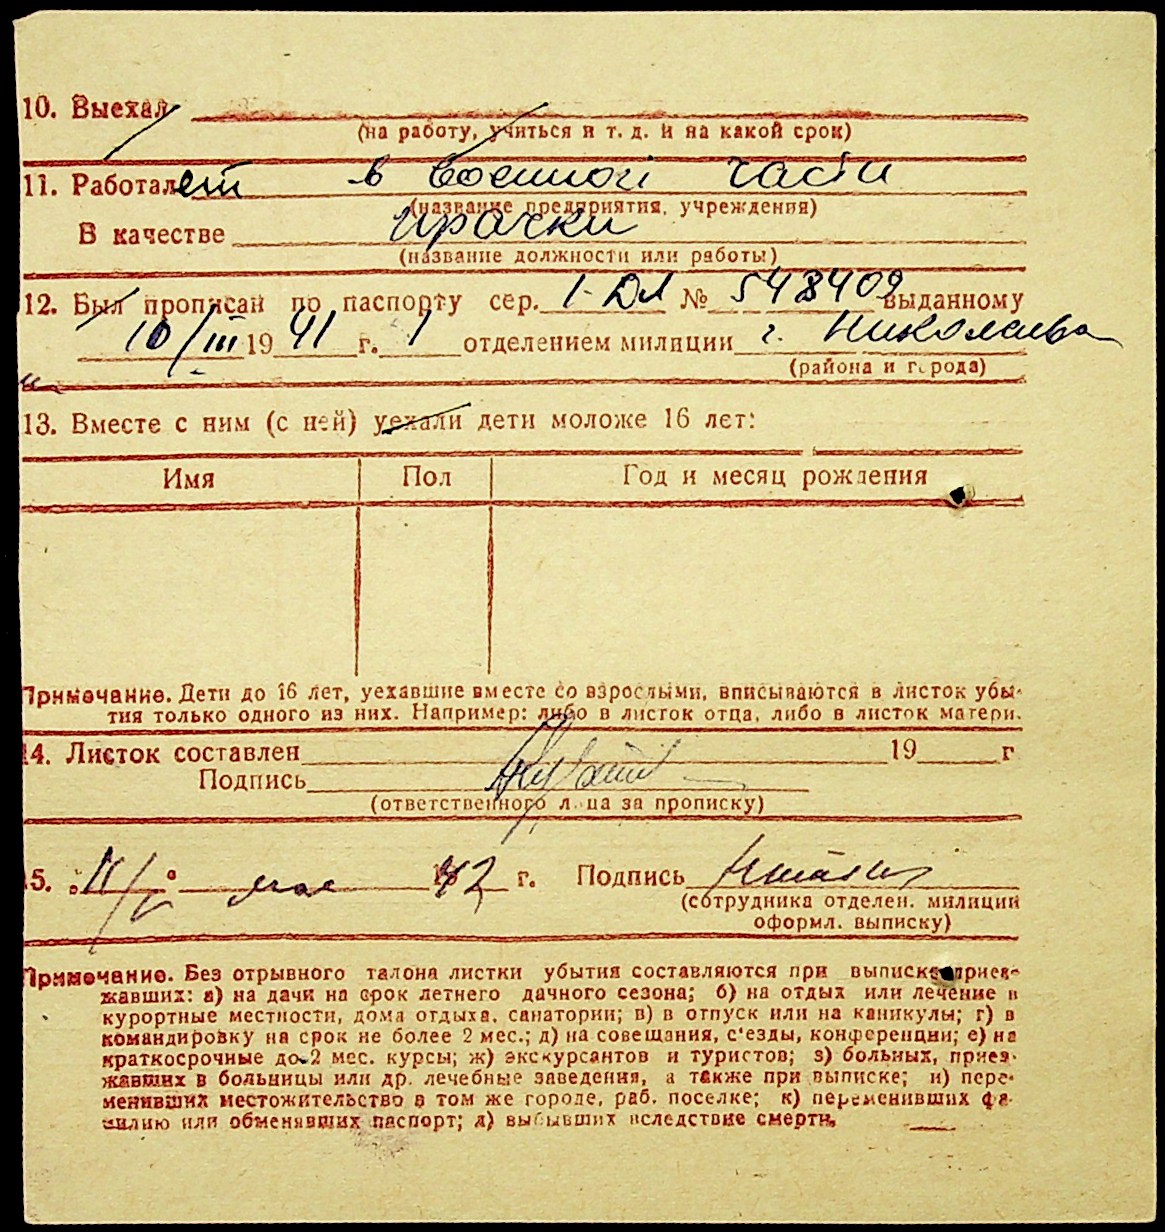 10. Выехал
(на работу, учиться и т. д. и на какой срок)
11. Работает в военной части
(название предприятия, учреждения)
В качестве прачки
(название должности или работы)
12. Был прописан по паспорту сер. I-ДЛ № 548409 выданному
10/III 1941 г. 1 отделением милиции г. Николаева
(района и города)
13. Вместе с ним (с ней) уехали дети моложе 16 лет:
Имя Пол Год и месяц рождения
Примечание. Дети до 16 лет, уехавшие вместе со взрослыми, вписываются в листок убы-
тия только одного из них. Например: либо в листок отца, либо в листок матери.
14. Листок составлен 19 г
Подпись
(ответственного лица за прописку)
15. мая 42 г. Подпись
(сотрудника отделен. милиции
оформл. выписку)
Примечание. Без отрывного талона листки убытия составляются при выписке приез-
жавших: а) на дачи на срок летнего дачного сезона; б) на отдых или лечение в
курортные местности, дома отдыха, санатории; в) в отпуск или на каникулы; г) в
командировку на срок не более 2 мес.; д) на совещания, с'езды, конференции; е) на
краткосрочные до 2 мес. курсы; ж) экскурсантов и туристов; з) больных, приез-
жавших в больницы или др. лечебные заведения, а также при выписке; и) пере-
менивших местожительство в том же городе, раб. поселке; к) переменивших фа-
милию или обменявших паспорт; л) выбывших вследствие смерти.